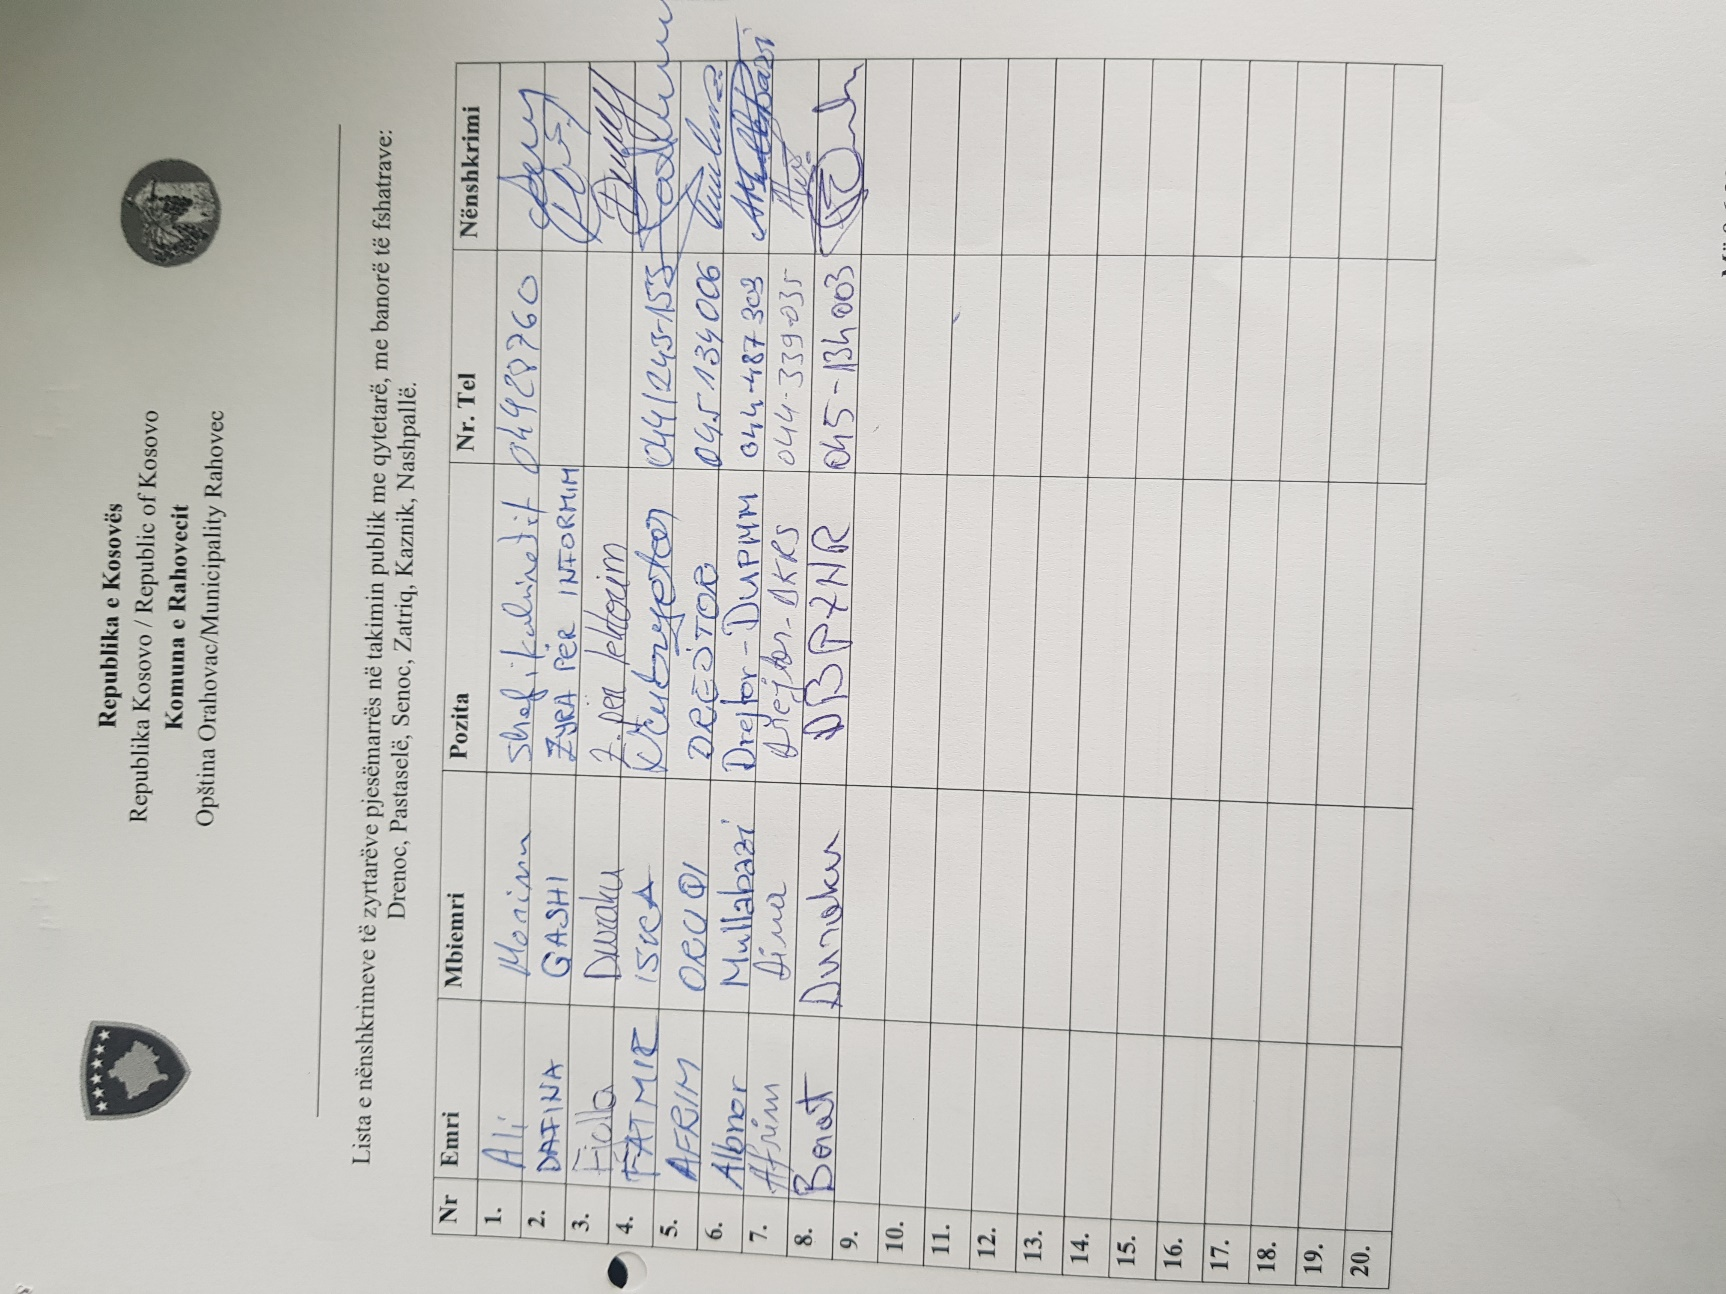 Republika e Kosovës
Republika Kosovo / Republic of Kosovo
Komuna e Rahovecit
Opština Orahovac/Municipality Rahovec
Lista e nënshkrimeve të zyrtarëve pjesëmarrës në takimin publik me qytetarë, me banorë të fshatrave:
Drenoc, Pastaselë, Senoc, Zatriq, Kaznik, Nashpallë.
Nr Emri Mbiemri Pozita Nr. Tel Nënshkrimi
1. Ali
2. DAFINA GASHI ZYRA PËR INFORMIM
3. Fjolla Duraku Z. për
4. FATMIR ISKA 044/243-153
5. AFRIM 045 134 006
6. Albnor Mullabazi Drejtor-DUPMM 044-487 303
7. Afrim Dina Drejtor- 044-339-035
8. Berat 045-134003
9.
10.
11.
12.
13.
14.
15.
16.
17.
18.
19.
20.